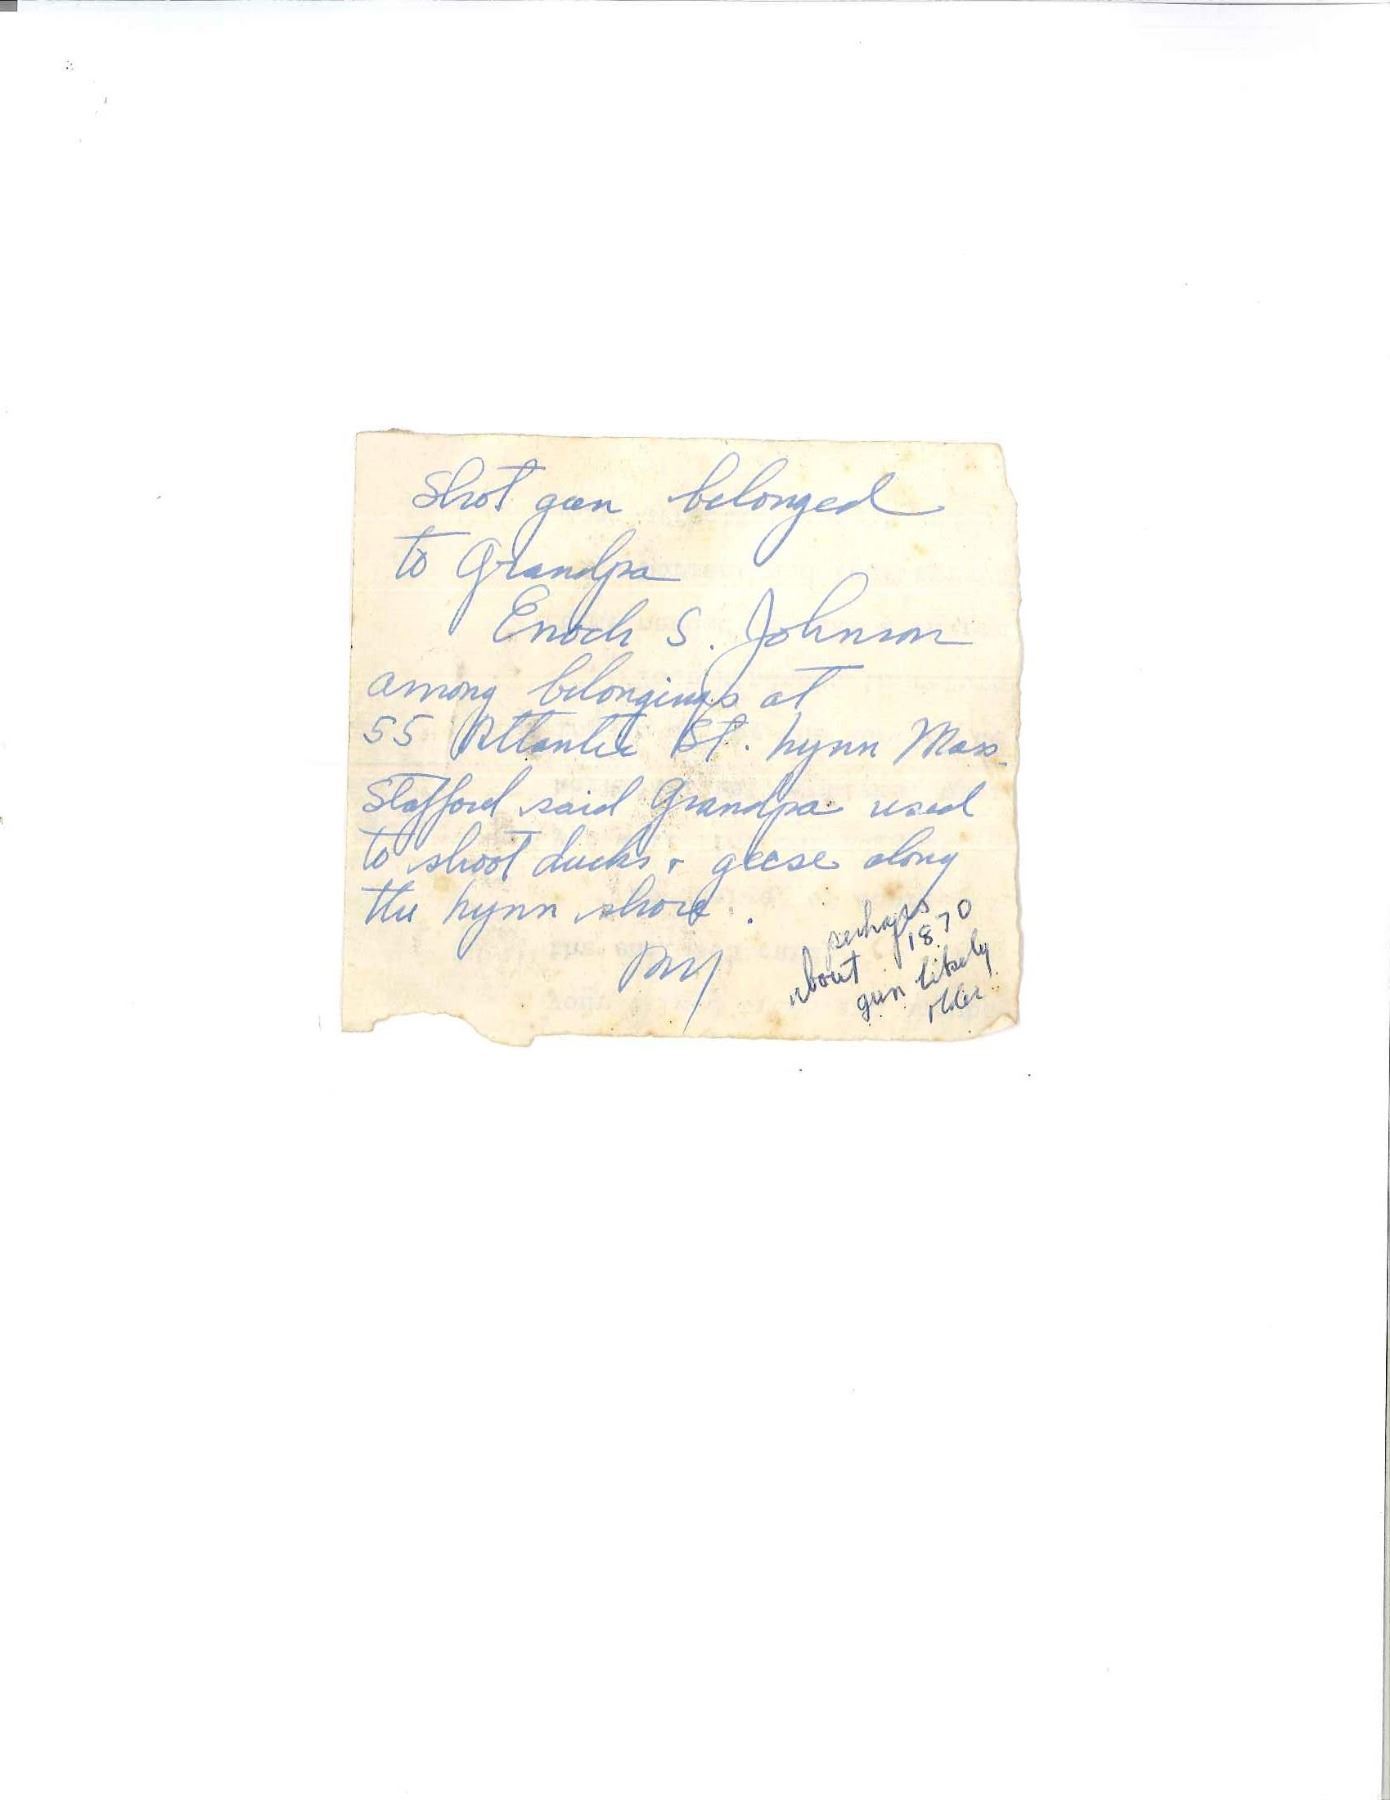 Shot gun belonged
to Grandpa
Enoch S. Johnson
among belongings at
55 Atlantic St. Lynn Mass.
Stafford said Grandpa used
to shoot ducks + geese along
the Lynn shore.
perhaps
about 1870
gun likely
older